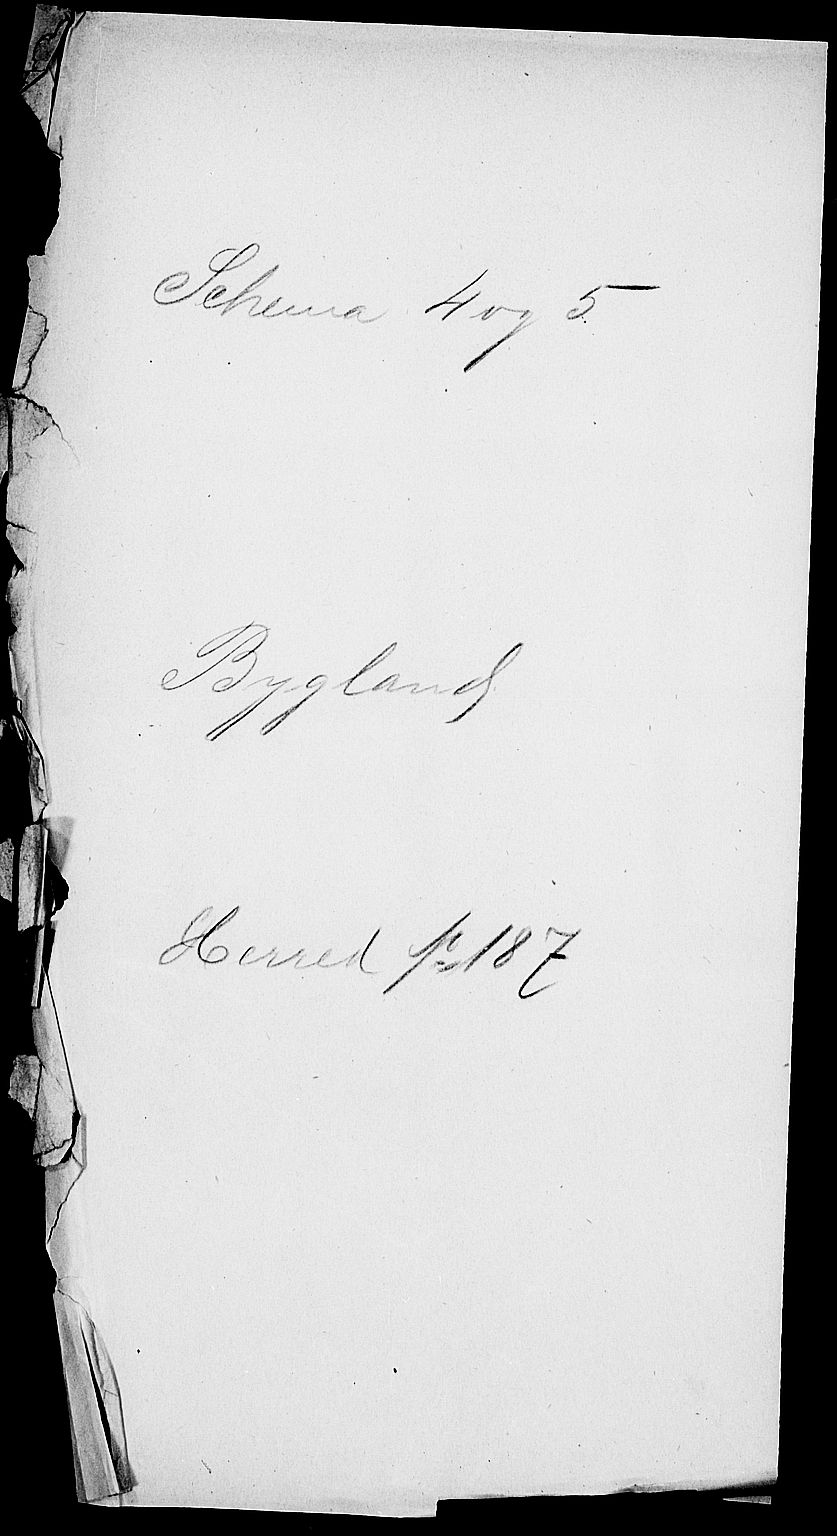 Schema 4 og 5
Bygland
Herred № 187